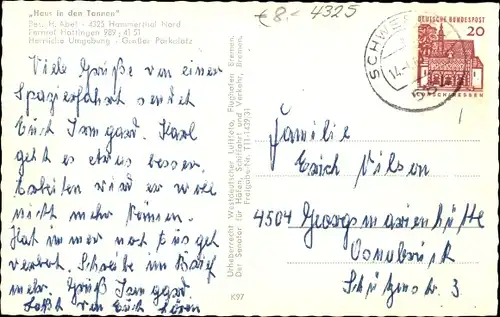 „Haus in den Tannen"
Bes. H. Abel - 4325 Hammerthal Nord
Fernruf Hattingen 989 / 41 51
Herrliche Umgebung - Großer Parkplatz
€ 8,- 4325
SCHWE
14.-
DEUTSCHE BUNDESPOST
20
Viele Grüße von einer
Spazierfahrt sendet
Euch Irmgard. Karl
geht es etwas besser.
Arbeiten wird er wohl
nicht mehr können.
Hat immer noch
Schreibe im Brief
mehr. Gruß Irmgard.
Laßt von Euch hören
Urheberrecht Westdeutscher Luftfoto, Flughafen Bremen.
Der Senator für Häfen, Schiffahrt und Verkehr, Bremen.
Freigabe-Nr.
K97
Familie
Erich Vilson
4504 Georgsmarienhütte
Osnabrück